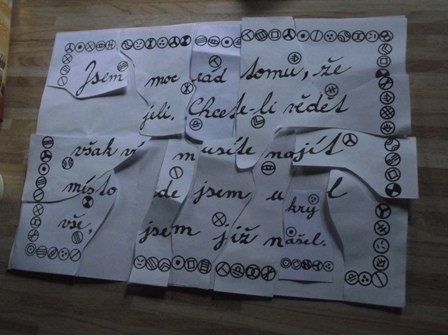 Jsem moc rád tomu, že
jili. Chcete-li vědět
však v musíte najít
místo de jsem u kryl
vše, jsem již našel.